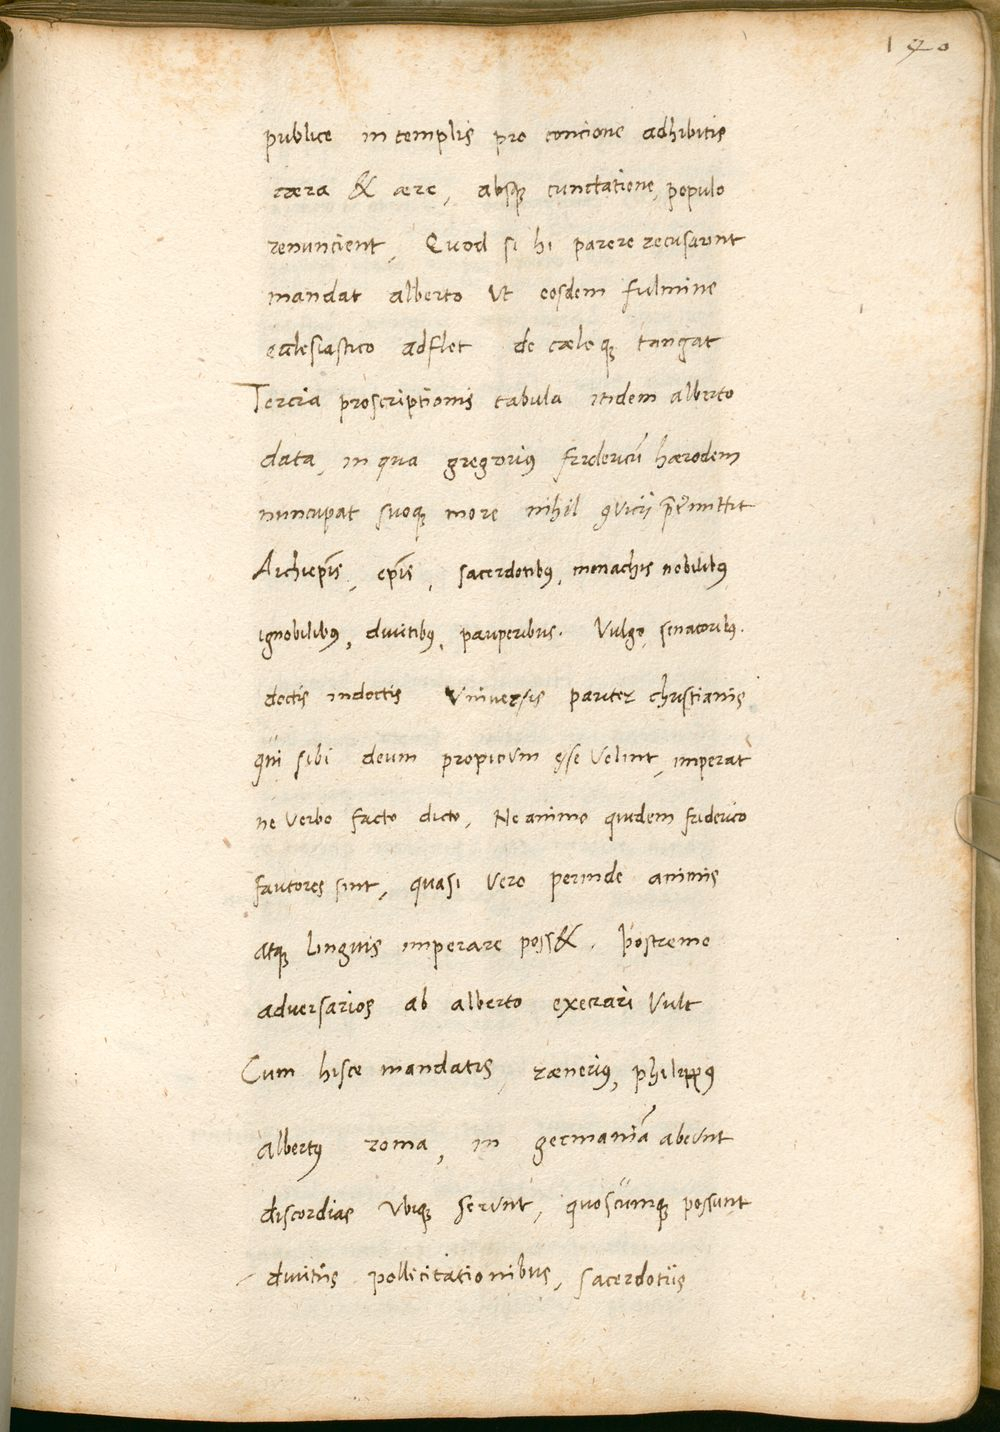 140
publice in templis pro concione adhibitis
cæra & ære, absq; cunctatione, populo
renuncient, Quod si hi parere recusarint
mandat alberto ut eosdem fulmine
ecclesiastico adflet de cæloq; tangat
Tercia proscriptionis tabula itidem alberto
data, in qua gregorius friderucũ hærodem
nuncupat suoq; more nihil ꝯvicij p̃t̃rmittit
Archiep̃is, ep̃is, sacerdotibꝰ, monachis nobilibꝰ
ignobilibꝰ, divitibꝰ, pauperibus. Vulgo, senatoribꝰ.
doctis indoctis Vniversis pariter christianis
qui sibi deum propicium esse Velint, imperat
ne verbo facto dicto, Ne animo quidem friderico
fautores sint, quasi vero perinde animis
atq; linguis imperare poss&. postremo
adversarios ab alberto execrari Vult
Cum hisce mandatis, rænerius, philippꝰ
albertꝰ roma, in germaniã abeunt
discordias ubiq; serunt, quoscumq; possunt
divitiis pollicitationibus, sacerdotiis